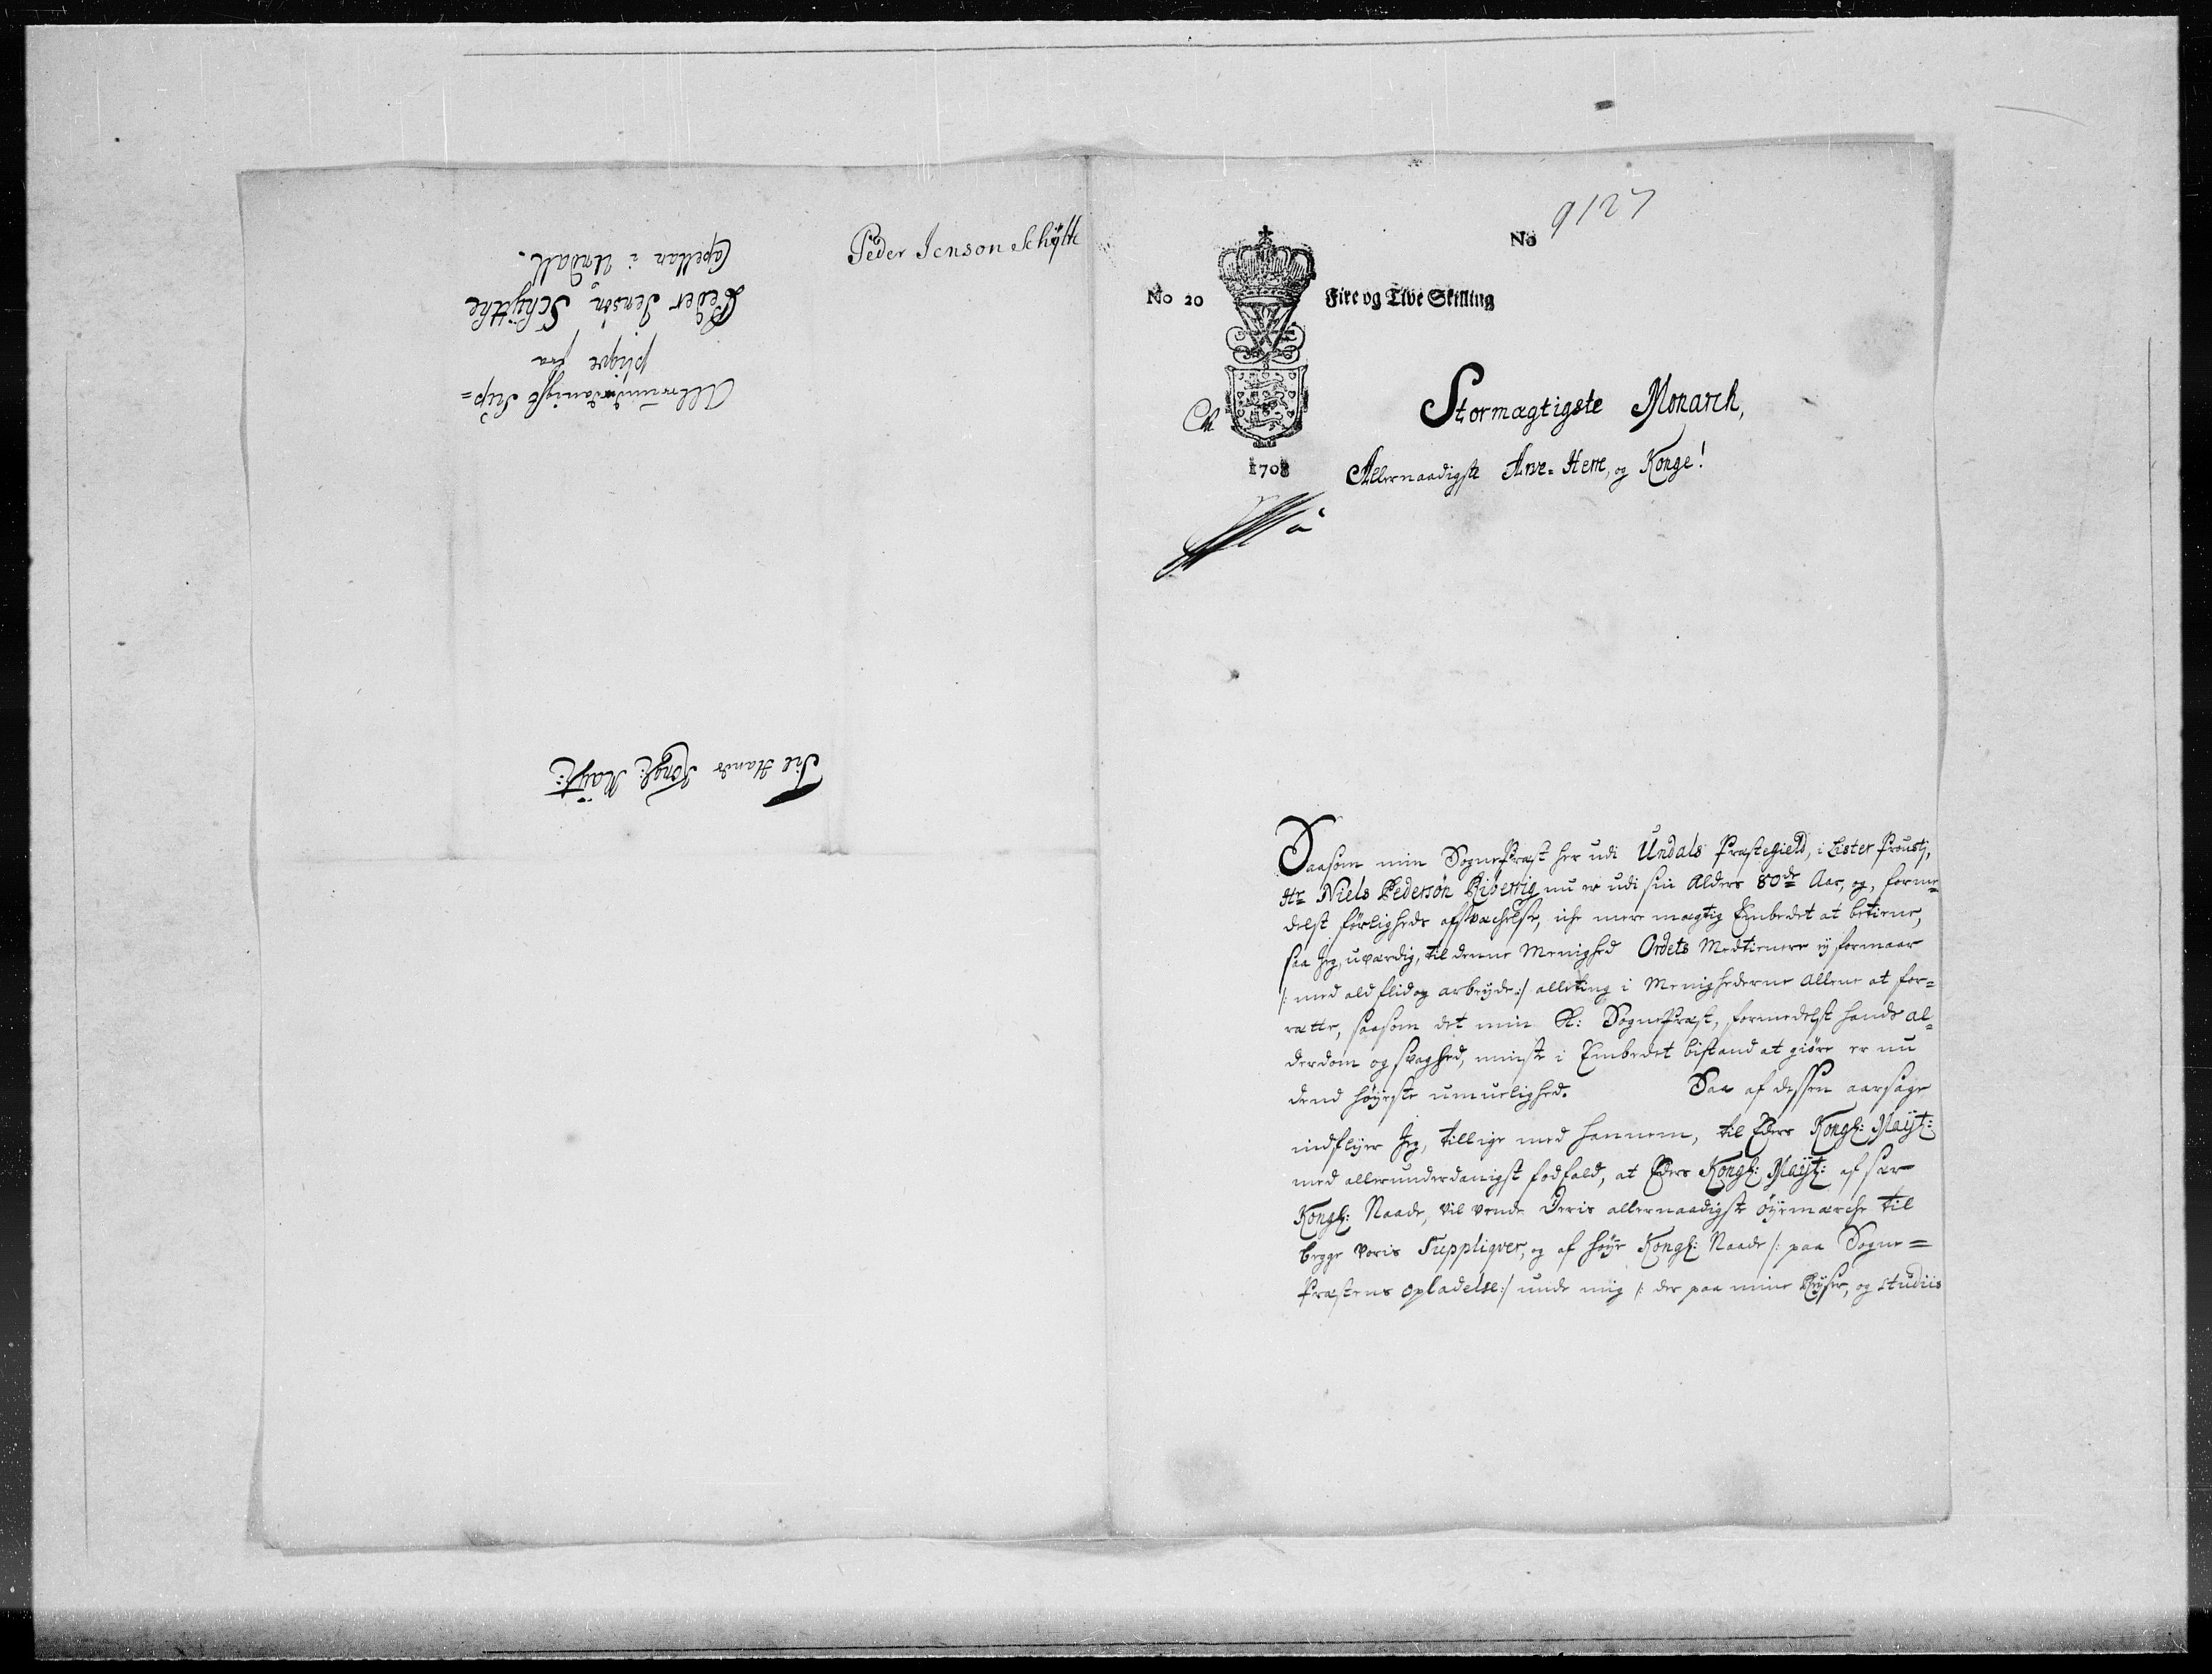 Peder Jenson Schÿtte
Allerunderdanigst Sup=
pliqve fra
Peder Jensøn Schÿtthe
Capellan i Undall.
Til Hands Kongl: Maÿt:
No 9127
No 20
Fire og Tive Skilling
1708
Stormagtigste Monarch,
Allernaadigste Arve-Herre, og Konge!
Saasom min SognePræst her udi Undals Præstegield, i Lister Proustj,
Hr Niels Pedersøn nu er udi sin Alders 80de Aar, og, forme=
delst førligheds afsvachelse, iche mere mægtig Embedet at betiene,
saa Jeg, uværdig, til denne Menighed Ordets Medtienere ej formaar
/: med ald flid og arbejde :/ alleting i Menighederne allene at for=
rætte, saasom det min S: SognePræst, formedelst hands al=
derdom og svaghed, minste i Embedet bistand at giøre er nu
dend høÿeste umuelighed. Saa af dessen aarsage
indflÿer Jeg, tillige med hannem, til Eders Kongl: Maÿt:
med allerunderdanigst fodfald, at Eders Kongl: Maÿt: af sær
Kongl: Naade, vil vende Deris allernaadigste øÿemærche til
begge voris Suppliqver, og af høÿe Kongl: Naade /: paa Sogne=
Præstens opladelse :/ unde mig /: der paa mine Rejser, og studiis